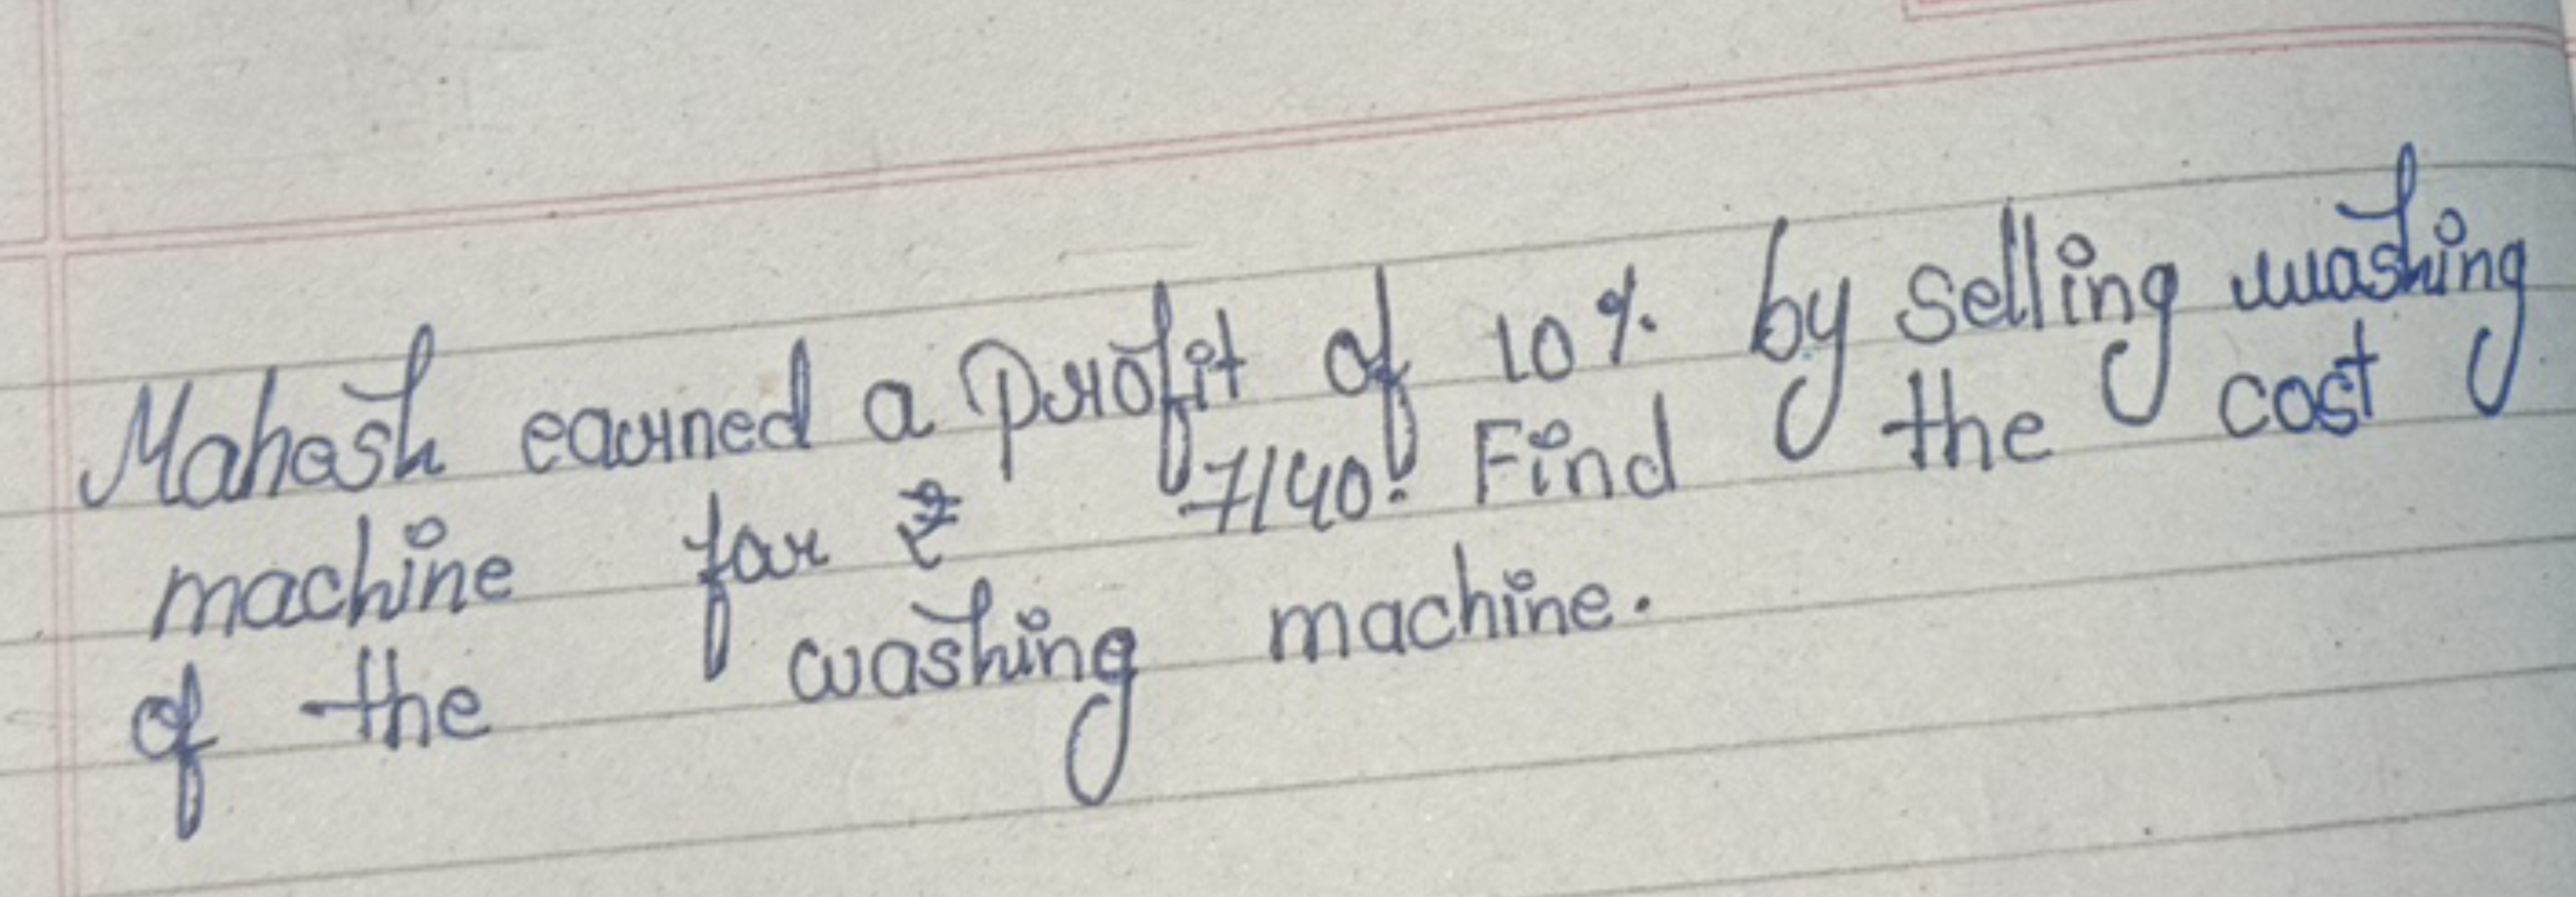 Mahesh earned a profit of 10% by selling washing
machine for ₹ 7140. Find the cost
of the washing machine.